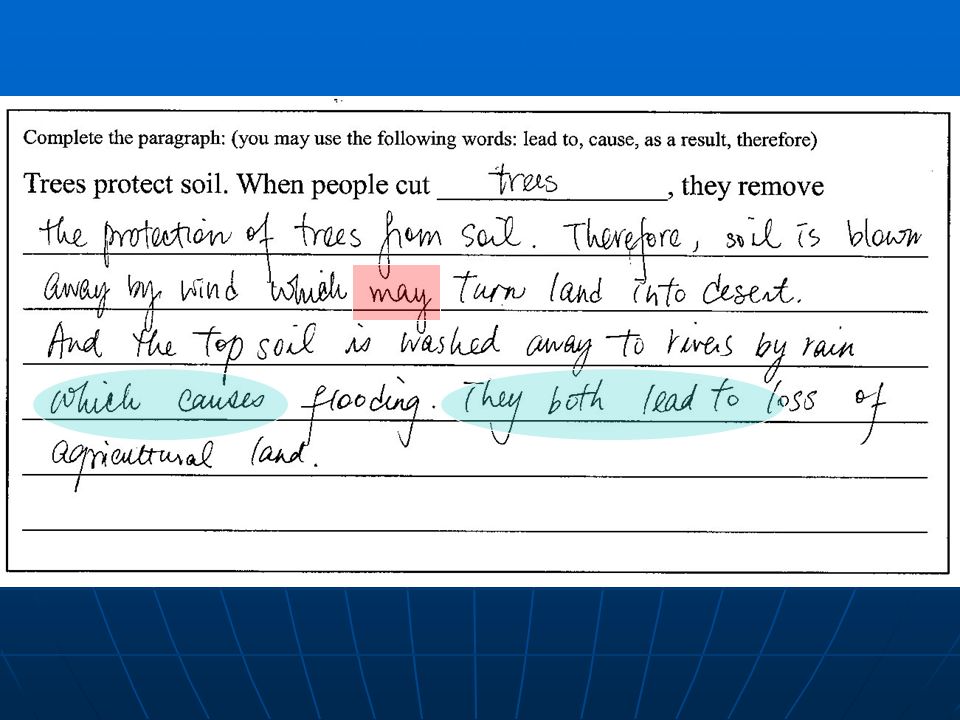 Complete the paragraph: (you may use the following words: lead to, cause, as a result, therefore)
Trees protect soil. When people cut trees, they remove
the protection of trees from soil. Therefore, soil is blown
away by wind which may turn land into desert.
And the top soil is washed away to rivers by rain
which causes flooding. They both lead to loss of
agricultural land.